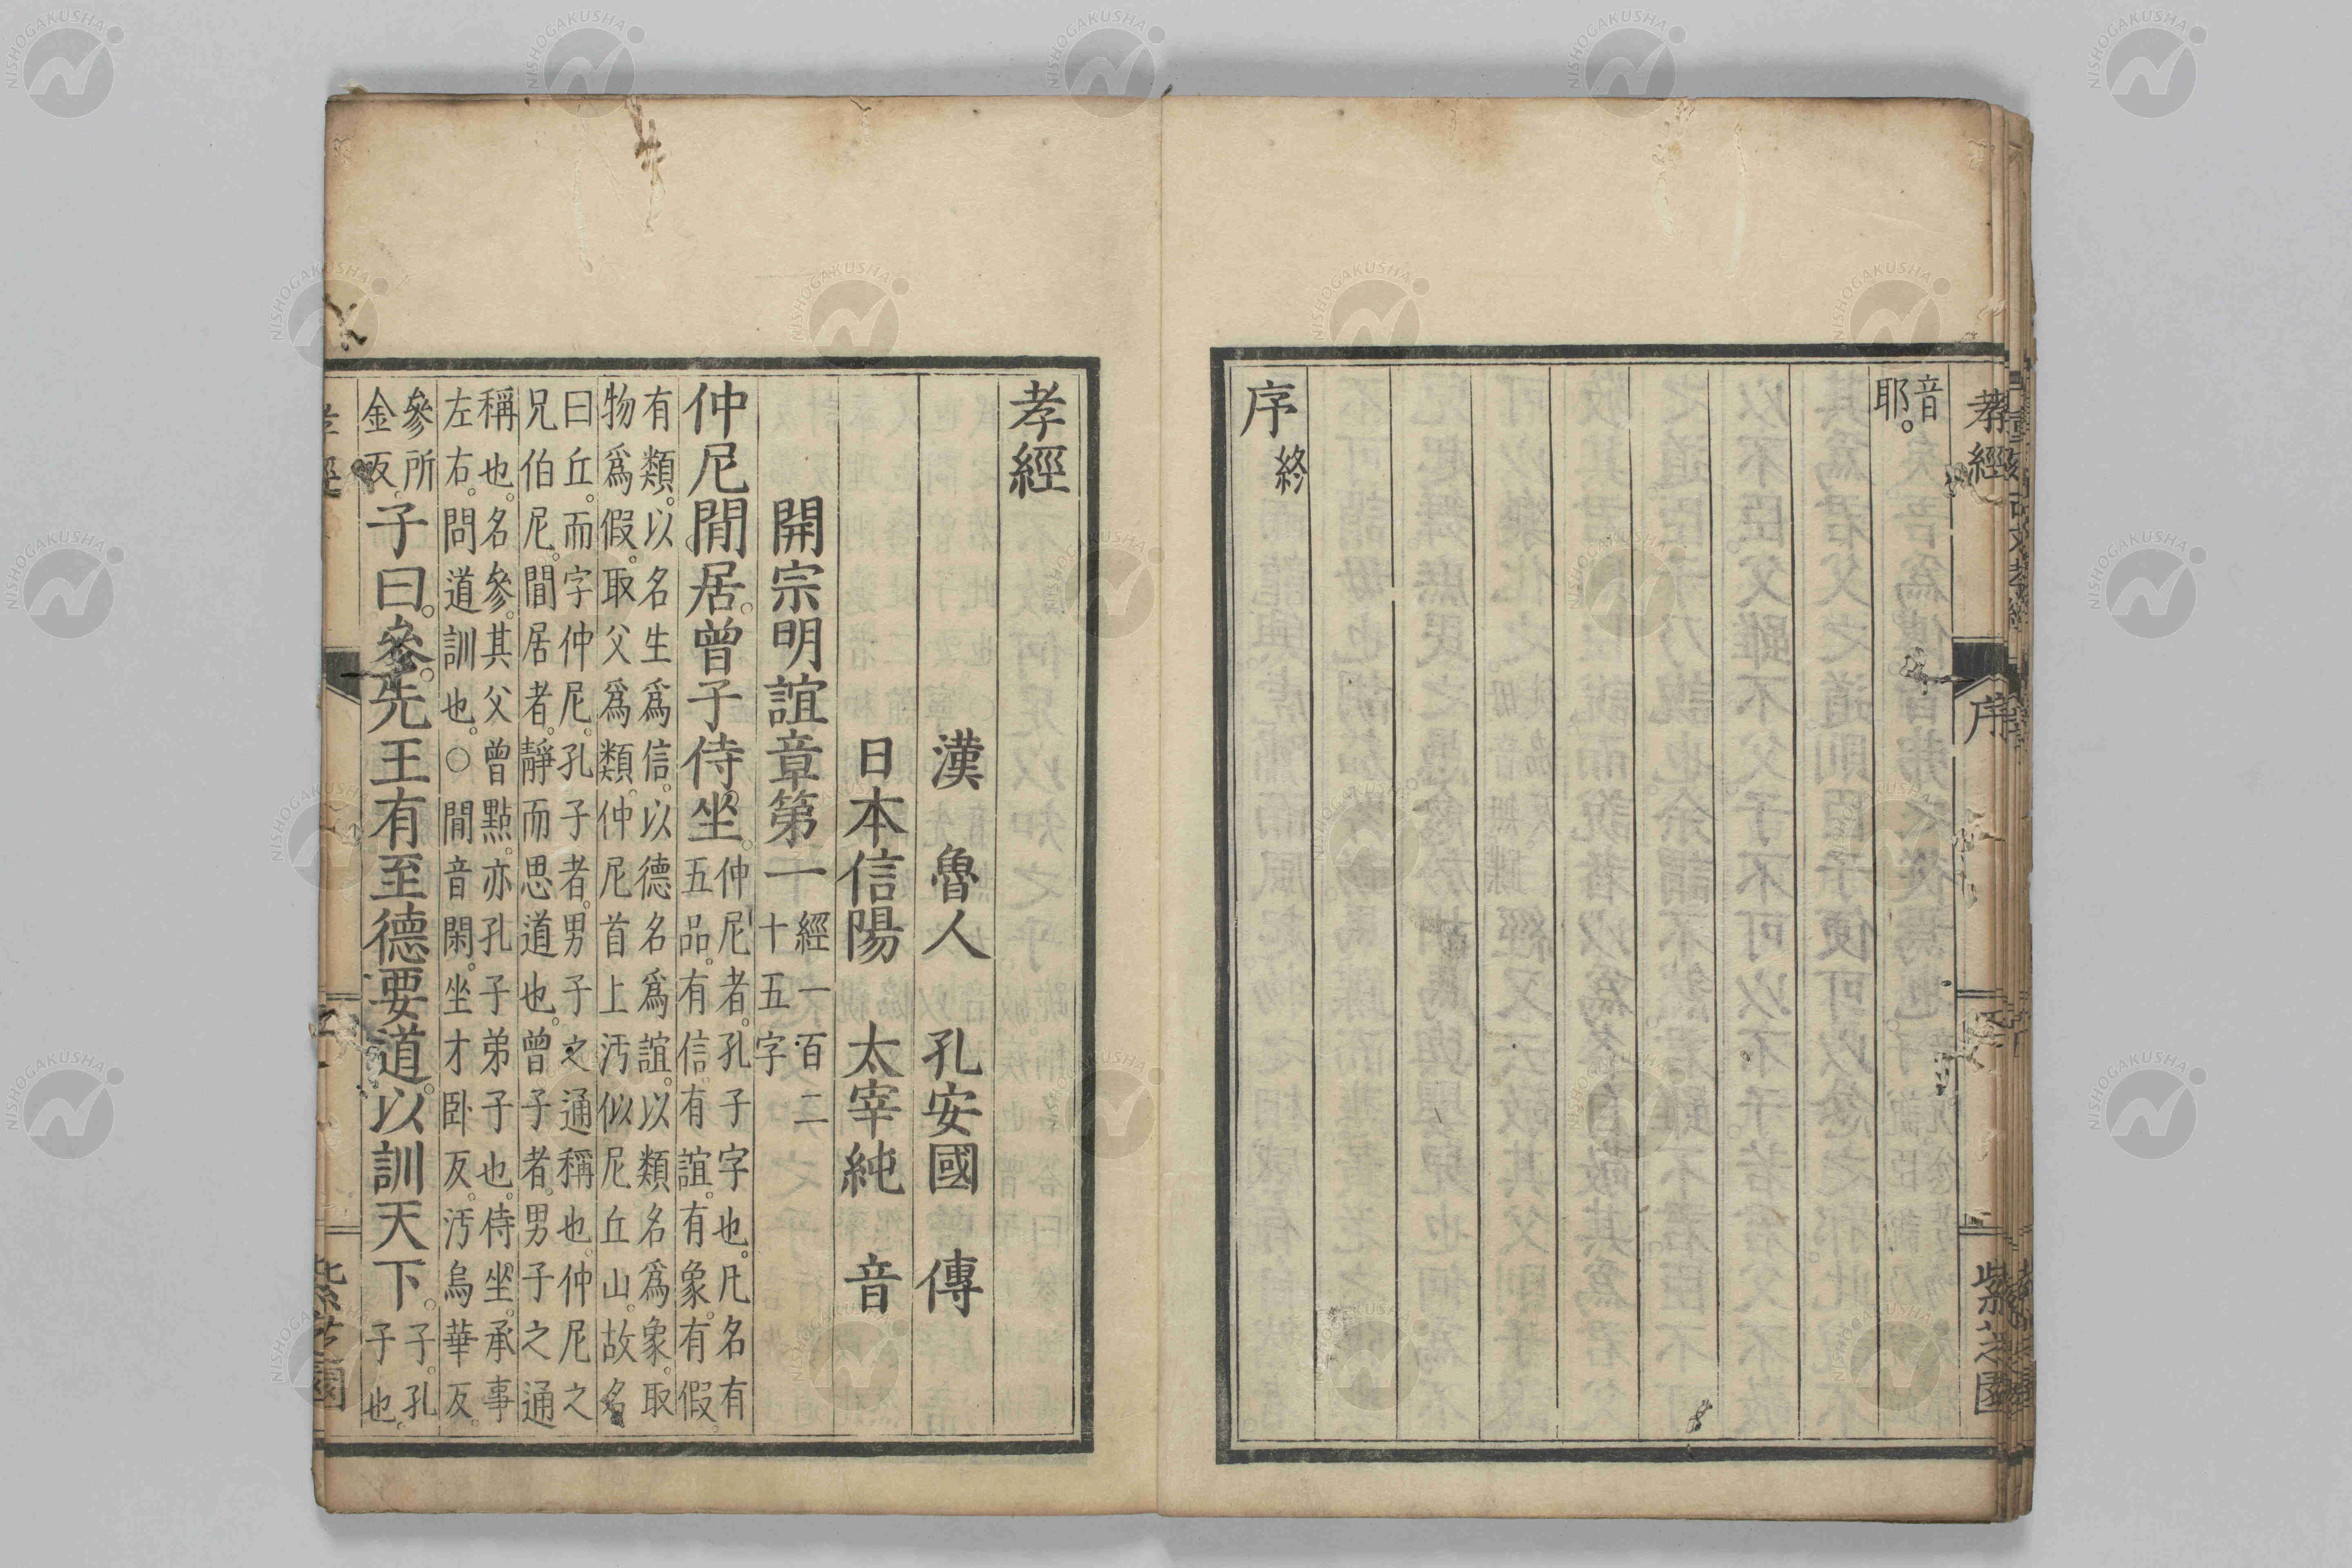 孝經 序 紫芝園
音
耶。
序終
孝經
漢 魯人 孔安國 傳
日本信陽 太宰純 音
開宗明誼章第一
經一百二
十五字
仲尼閒居。曾子侍坐。
仲尼者。孔子字也。凡名有
五品。有信有誼。有象。有假
有類。以名生爲信。以德名爲誼。以類名爲象。取
物爲假。取父爲類。仲尼首上汚似尼丘山。故名
曰丘。而字仲尼。孔子者。男子之通稱也。仲尼之
兄伯尼。閒居者。靜而思道也。曾子者。男子之通
稱也。名參。其父曾點。亦孔子弟子也。侍坐。承事
左右。問道訓也。○閒音閑。坐才卧反。汚烏華反。
參所
金反。
子曰。參。先王有至德要道。以訓天下。
子。孔
子也。
孝經 紫芝園
NISHOGAKUSHA